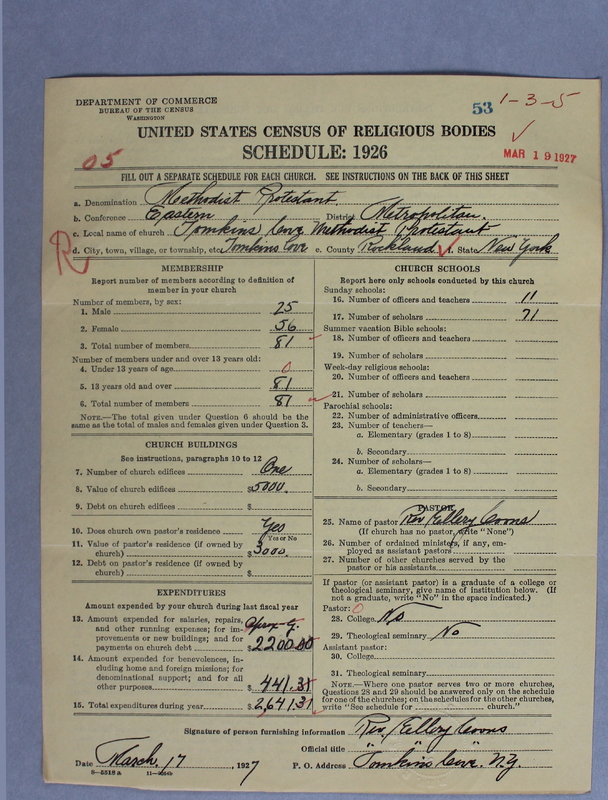 DEPARTMENT OF COMMERCE
BUREAU OF THE CENSUS
WASHINGTON
53 1-3-5
UNITED STATES CENSUS OF RELIGIOUS BODIES
SCHEDULE: 1926
05
MAR 19 1927
FILL OUT A SEPARATE SCHEDULE FOR EACH CHURCH. SEE INSTRUCTIONS ON THE BACK OF THIS SHEET
a. Denomination Methodist Protestant
b. Conference Eastern District Metropolitan.
c. Local name of church Tomkins Cove Methodist Protestant
R
d. City, town, village, or township, etc. Tomkins Cove e. County Rockland f. State New York
MEMBERSHIP
Report number of members according to definition of
member in your church
Number of members, by sex:
1. Male 25
2. Female 56
3. Total number of members 81
Number of members under and over 13 years old:
4. Under 13 years of age 0
5. 13 years old and over 81
6. Total number of members 81
NOTE.—The total given under Question 6 should be the
same as the total of males and females given under Question 3.
CHURCH BUILDINGS
See instructions, paragraphs 10 to 12
7. Number of church edifices One
8. Value of church edifices $5000.
9. Debt on church edifices $
10. Does church own pastor's residence Yes
Yes or No
11. Value of pastor's residence (if owned by
church) $3000.
12. Debt on pastor's residence (if owned by
church) $
EXPENDITURES
Amount expended by your church during last fiscal year
13. Amount expended for salaries, repairs,
and other running expenses; for im-
provements or new buildings; and for
payments on church debt $2200.00
14. Amount expended for benevolences, in-
cluding home and foreign missions; for
denominational support; and for all
other purposes $441.31
15. Total expenditures during year $2,641.31
CHURCH SCHOOLS
Report here only schools conducted by this church
Sunday schools:
16. Number of officers and teachers 11
17. Number of scholars 71
Summer vacation Bible schools:
18. Number of officers and teachers
19. Number of scholars
Week-day religious schools:
20. Number of officers and teachers
21. Number of scholars
Parochial schools:
22. Number of administrative officers
23. Number of teachers—
a. Elementary (grades 1 to 8)
b. Secondary
24. Number of scholars—
a. Elementary (grades 1 to 8)
b. Secondary
PASTOR
25. Name of pastor Rev. Ellery Coons
(If church has no pastor, write "None")
26. Number of ordained ministers, if any, em-
ployed as assistant pastors
27. Number of other churches served by the
pastor or his assistants
If pastor (or assistant pastor) is a graduate of a college or
theological seminary, give name of institution below. (If
not a graduate, write "No" in the space indicated.)
Pastor: 0
28. College No
29. Theological seminary No
Assistant pastor:
30. College
31. Theological seminary
NOTE.—Where one pastor serves two or more churches,
Questions 28 and 29 should be answered only on the schedule
for one of the churches; on the schedules for the other churches,
write "See schedule for church."
Signature of person furnishing information Rev. Ellery Coons
Official title " " "
Date March. 17, 1927 P. O. Address Tomkins Cove. N.Y.